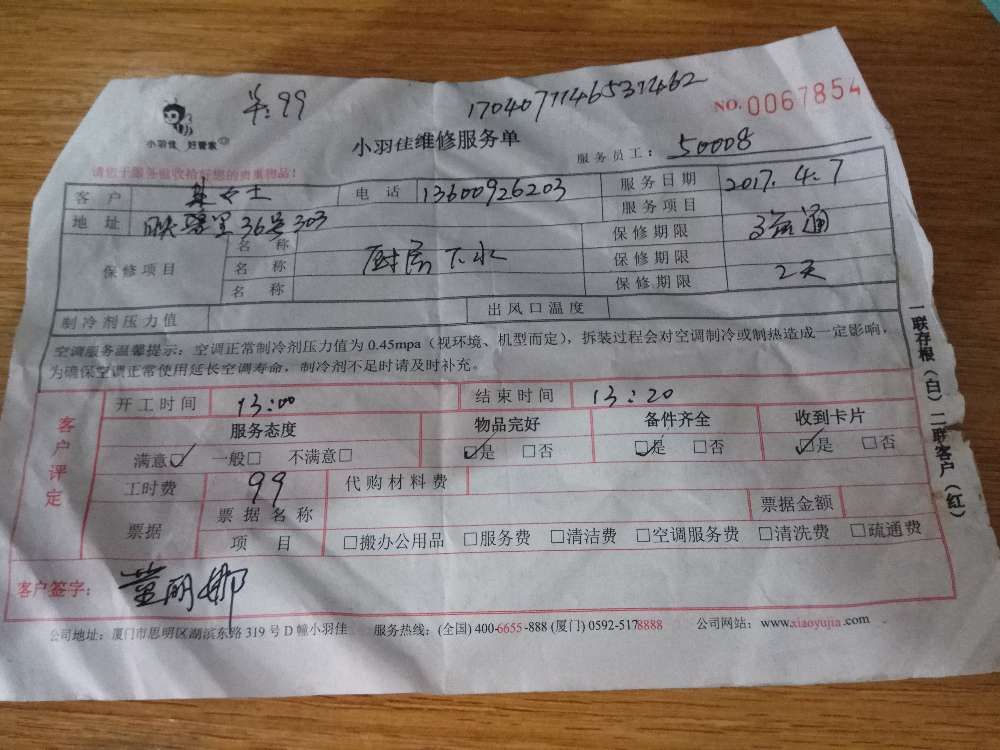 单:99
17040711465371462
NO. 0067854
小羽佳 好管家
小羽佳维修服务单
服务员工: 50008
请您于服务验收拾好您的贵重物品!
客户 女士 电话 13600926203 服务日期 2017.4.7
地址 36号303 服务项目 疏通
保修项目 名称 厨房下水 保修期限
名称 保修期限
名称 保修期限 2天
制冷剂压力值 出风口温度
空调服务温馨提示:空调正常制冷剂压力值为 0.45mpa(视环境、机型而定),拆装过程会对空调制冷或制热造成一定影响,
为确保空调正常使用延长空调寿命,制冷剂不足时请及时补充。
客户评定
开工时间 13:00 结束时间 13:20
服务态度 物品完好 备件齐全 收到卡片
满意☑ 一般□ 不满意□ ☑是 □否 ☑是 □否 ☑是 □否
工时费 99 代购材料费
票据 票据名称 票据金额
项目 □搬办公用品 □服务费 □清洁费 □空调服务费 □清洗费 □疏通费
客户签字: 董丽娜
公司地址:厦门市思明区湖滨东路 319 号 D 幢小羽佳 服务热线:(全国) 400-6655-888 (厦门) 0592-5178888 公司网站:www.xiaoyujia.com
一联存根(白)二联客户(红)